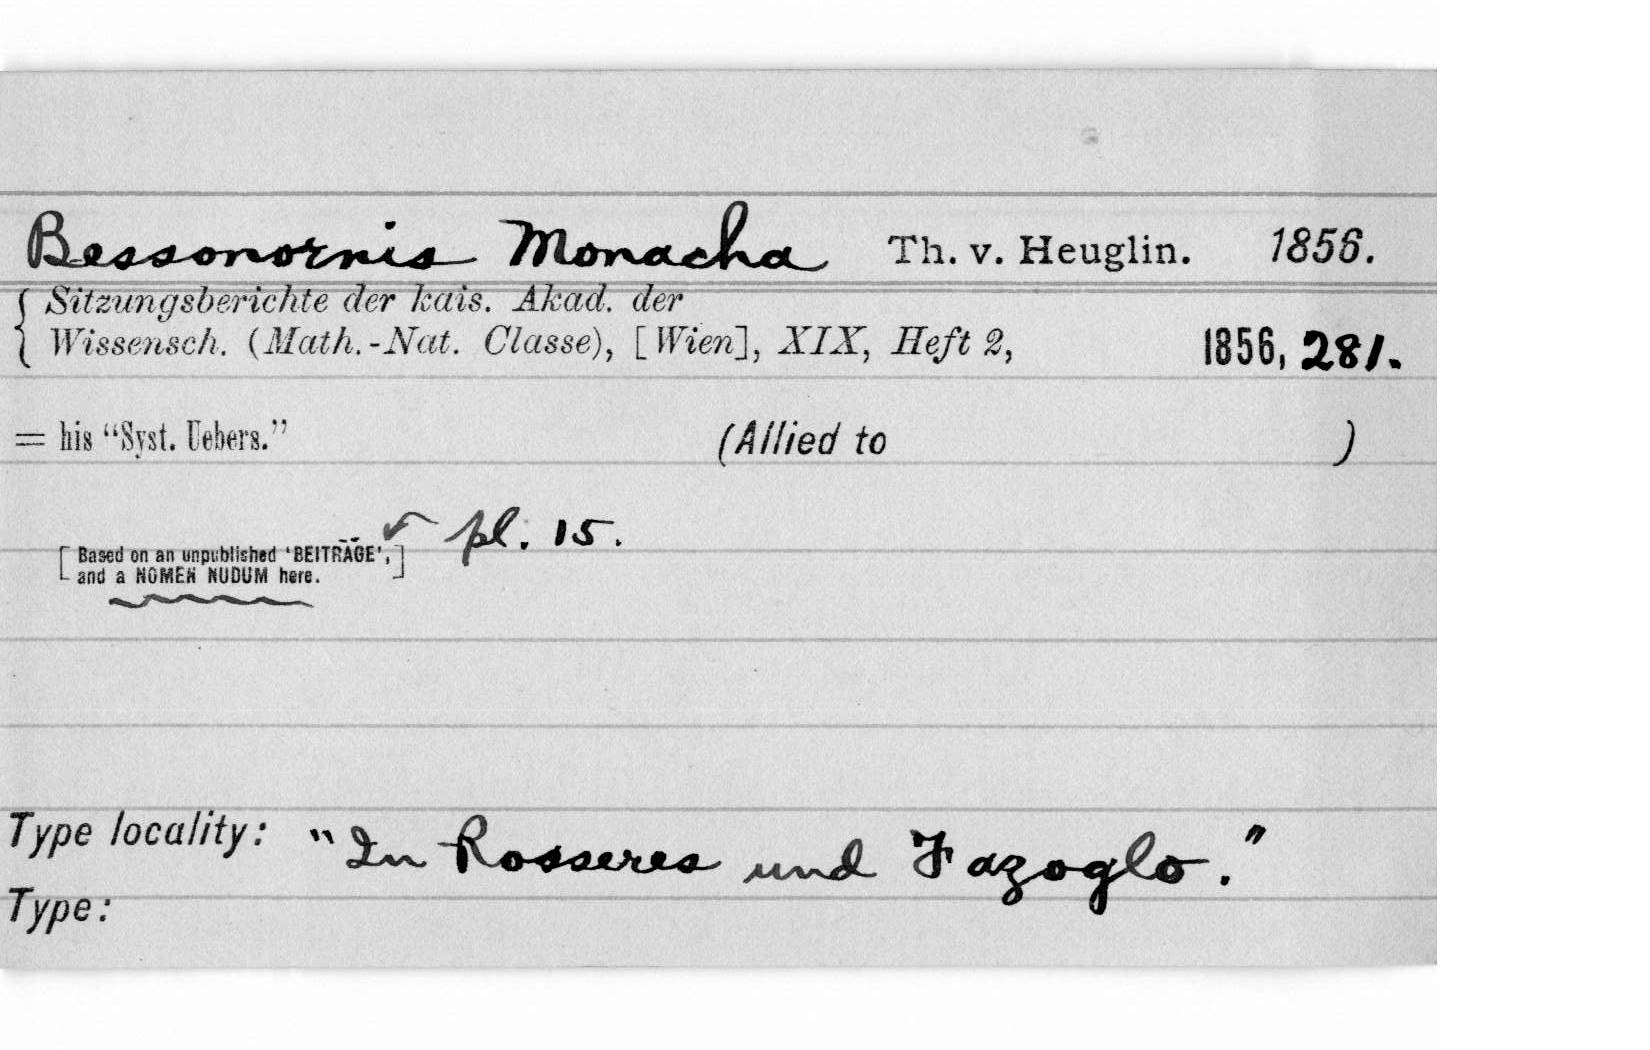 Bessonornis Monacha Th. v. Heuglin. 1856.
Sitzungsberichte der kais. Akad. der
Wissensch. (Math.-Nat. Classe), [Wien], XIX, Heft 2, 1856, 281.
= his "Syst. Uebers." (Allied to )
pl. 15.
[Based on an unpublished 'BEITRÄGE',]
and a NOMEN NUDUM here.
Type locality: "In Rosseres und Fazoglo."
Type: